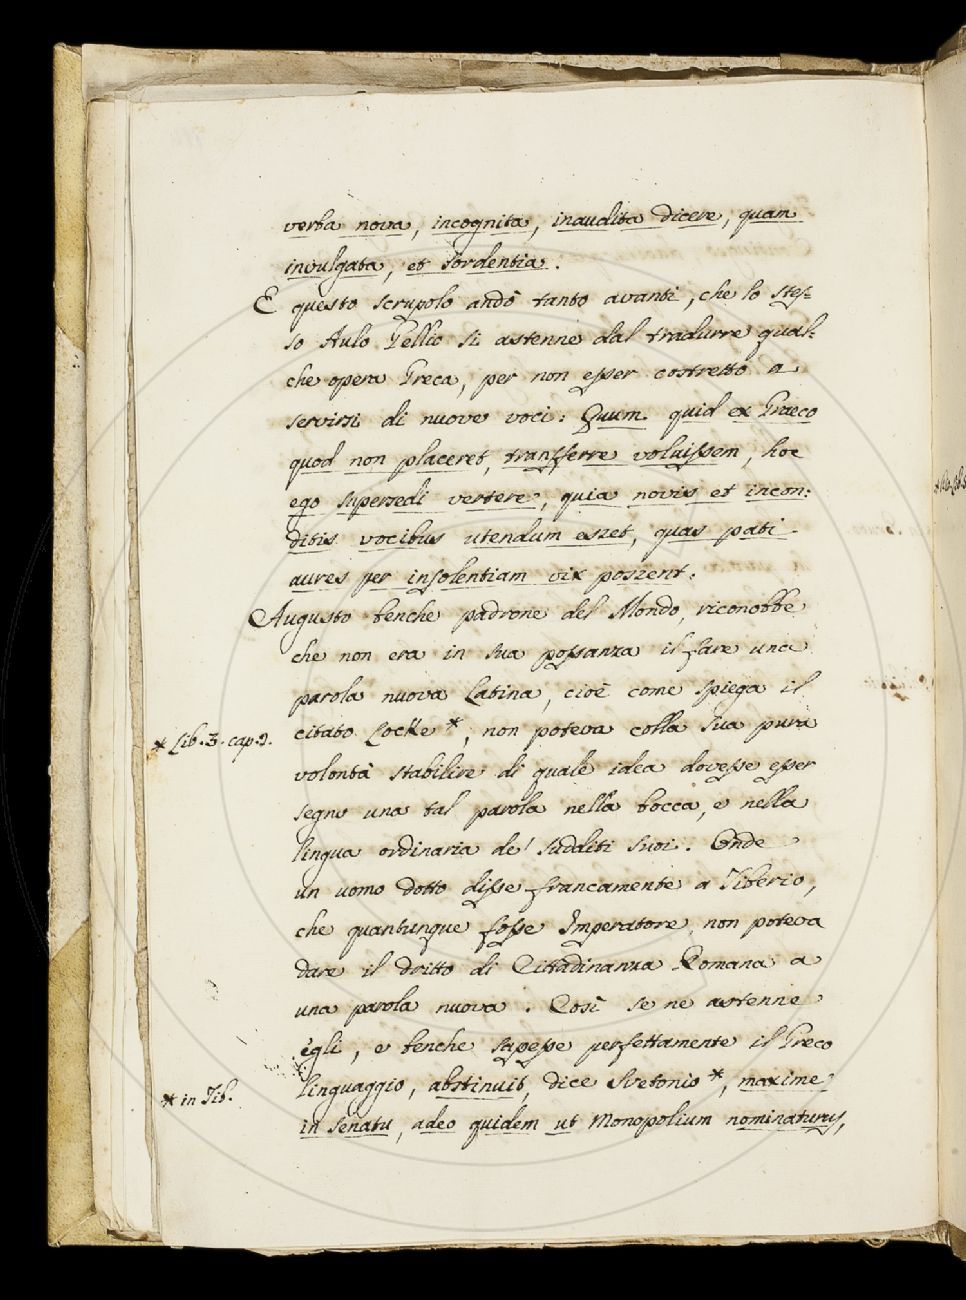 verba nova, incognita, inaudita dicere, quam
invulgata, et sordentia.
E questo scrupolo andò tanto avanti, che lo stes=
so Aulo Gellio si astenne dal tradurre qual=
che opera Greca, per non esser costretto a
servirsi di nuove voci: Quum quid ex Graeco
quod non placeret, transferre voluissem, hoc
ego supersedi vertere, quia novis et incon=
ditis vocibus utendum esset, quas pati
aures per insolentiam vix possent.
Augusto benche padrone del Mondo, riconobbe
che non era in sua possanza il fare una
parola nuova Latina, cioè come spiega il
citato Locke *, non poteva colla sua pura
* Lib. 3. cap. 2.
volontà stabilire di quale idea dovesse esser
segno una tal parola nella bocca, e nella
lingua ordinaria de' sudditi suoi. Onde
un uomo dotto disse francamente a Tiberio,
che quantunque fosse Imperatore, non poteva
dare il dritto di Cittadinanza Romana a
una parola nuova. Così se ne astenne
egli, e benche sapesse perfettamente il Greco
linguaggio, abstinuit, dice Svetonio *, maxime
* in Tib.
in Senatu, adeo quidem ut Monopolium nominaturus,